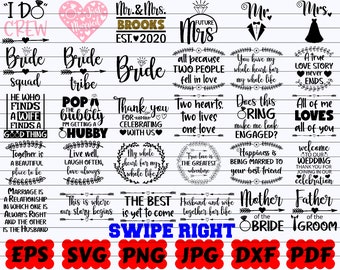 "I DO"
CREW
Mr. & Mrs.
BROOKS
EST. 2020
FUTURE
Mrs
Mr.
Mrs.
Bride
squad
Bride
tribe
Bride
all because
TWO PEOPLE
fell in love
You have my
whole heart for
my whole life
A TRUE
LOVE STORY
NEVER
ENDS
HE WHO
FINDS
A WIFE
FINDS A
GOOD THING
POP
the bubbly
I'M GETTING A
HUBBY
Thank you
FOR
CELEBRATING
WITH US
Two hearts,
Two lives
one love
Does this
RING
make me look
ENGAGED?
All of me
LOVES
all of you
Together is
a beautiful
place to be
Live well,
laugh often,
love always
My whole
heart for my
whole life
True love is
THE GREATEST
adventure
Happiness is
BEING MARRIED TO
your best friend
welcome
TO OUR
WEDDING
THANK YOU FOR
JOINING IN OUR
celebration
MARRIAGE IS
A RELATIONSHIP
IN WHICH ONE IS
ALWAYS RIGHT
AND THE OTHER
IS THE HUSBAND
This is where
our story begins
THE BEST
is yet to come
Husband and wife
together for life
Mother
of the BRIDE
Father
of the GROOM
SWIPE RIGHT
EPS SVG PNG JPG DXF PDF